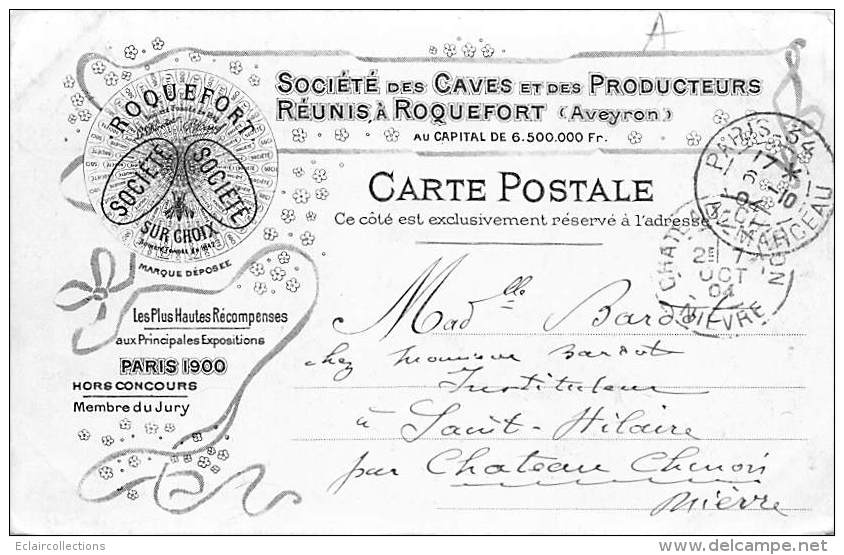 A
SOCIÉTÉ DES CAVES ET DES PRODUCTEURS
RÉUNIS, À ROQUEFORT (Aveyron)
AU CAPITAL DE 6.500.000 Fr.
ROQUEFORT
SOCIÉTÉ SOCIÉTÉ
SUR CHOIX
MARQUE DÉPOSÉE
CARTE POSTALE
Ce côté est exclusivement réservé à l'adresse
PARIS 34
17 * 10
OCT
MARCEAU
2E
OCT
04
NIÈVRE
Les Plus Hautes Récompenses
aux Principales Expositions
PARIS 1900
HORS CONCOURS
Membre du Jury
Madelle Bardot
chez Monsieur Bardot
Instituteur
à Saint-Hilaire
par Chateau Chinon
Nièvre
Eclaircollections
delcampe.net